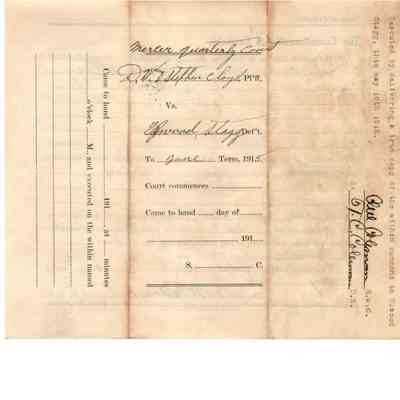 Mercer Quarterly Court
D. W. & Stephen Cloyd Pl'ff.
Vs.
Elwood Stagg Def't.
To June Term, 1915
Court commences
Came to hand day of
191
S. C.
Came to hand 191 at minutes
o'clock M., and executed on the within named
Executed by delivering a true copy of the within summons to Elwood
Stagg, this May 19th 1915.
Coleman S.M.C.
W. C. Coleman D.S.